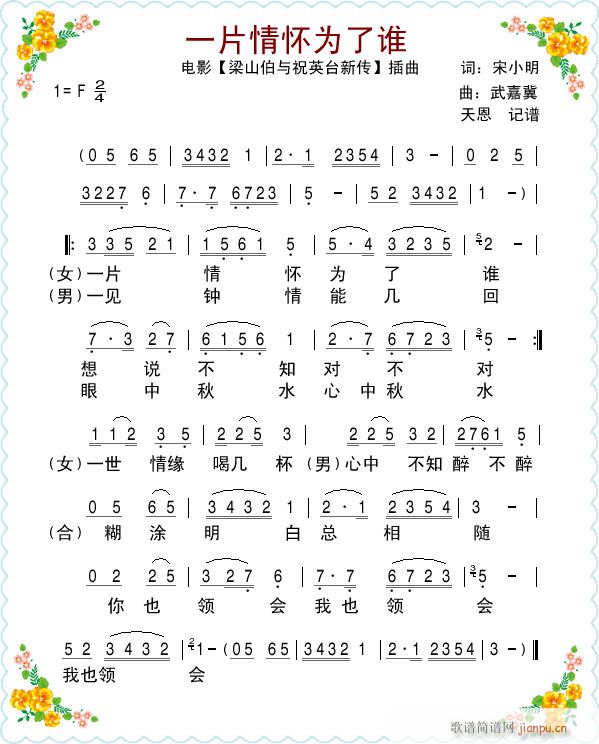 一片情怀为了谁
电影【梁山伯与祝英台新传】插曲 词：宋小明
1= F 2/4 曲：武嘉冀
天恩 记谱
(0 5 6 5 | 3432 1 | 2· 1 2354 | 3 － | 0 2 5 |
3227 6 | 7· 7 6723 | 5 － | 5 2 3432 | 1 －)|
‖: 3 3 5 2 1 | 1 5 6 1 5 | 5· 4 3 2 3 5 | 5 2 － |
(女)一片 情 怀 为 了 谁
(男)一见 钟 情 能 几 回
7· 3 2 7 | 6 1 5 6 1 | 2· 7 6 7 2 3 | 3 5 － :‖
想 说 不 知 对 不 对
眼 中 秋 水 心 中 秋 水
1 1 2 3 5 | 2 2 5 3 | 2 2 5 3 2 | 2761 5 |
(女)一世 情缘 喝几 杯 (男)心中 不知 醉 不 醉
0 5 6 5 | 3 4 3 2 1 | 2· 1 2 3 5 4 | 3 － |
(合) 糊 涂 明 白 总 相 随
0 2 2 5 | 3 2 7 6 | 7· 7 6 7 2 3 | 3 5 － |
你 也 领 会 我 也 领 会
5 2 3 4 3 2 | 2 1 －(0 5 6 5 | 3432 1 | 2· 1 2354 | 3 － ‖
我也领 会
歌谱简谱网
jianpu.cn